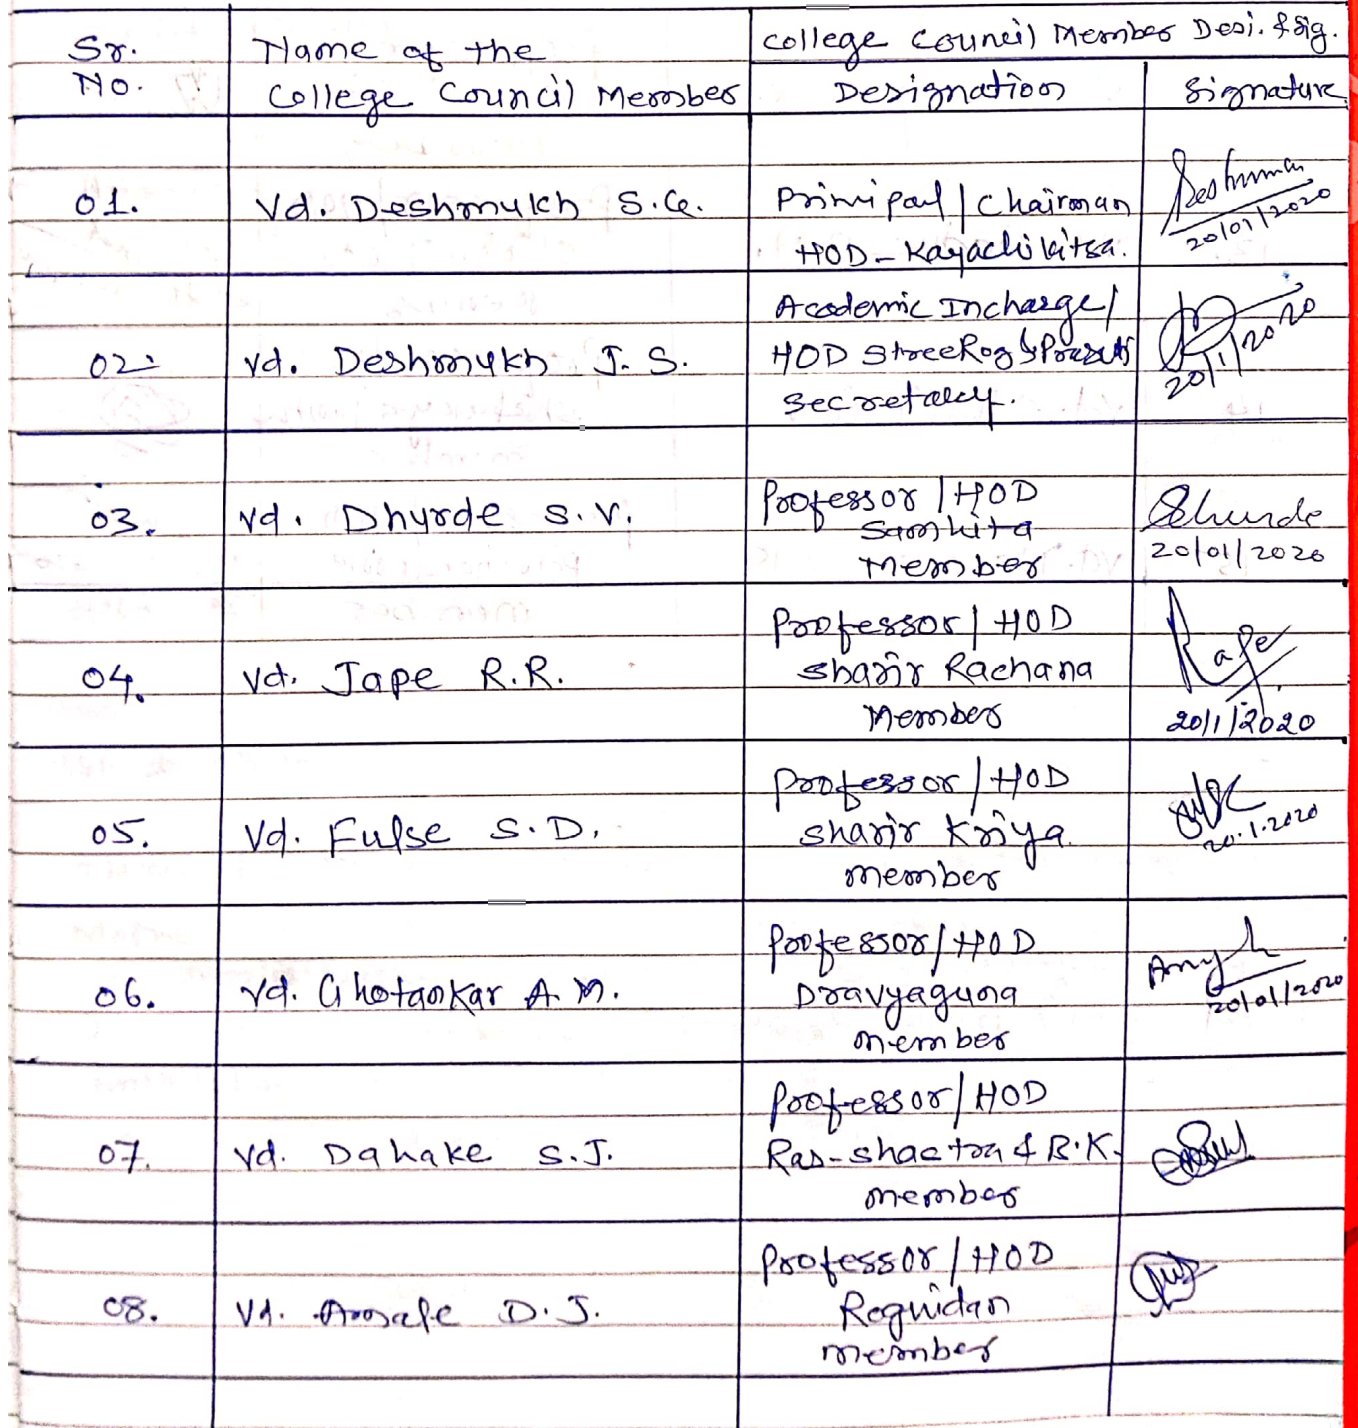 Sr.
No.
Name of the
College Council Member
College Council Member Desi. & Sig.
Designation
Signature
01.
Vd. Deshmukh S.G.
Prinipal / Chairman
HOD - Kayachikitsa.
20/01/2020
02.
Vd. Deshmukh J. S.
Academic Incharge /
HOD StreeRog & Prasuti
Secretary.
20/1/2020
03.
Vd. Dhurde S. V.
Professor / HOD
Samhita
Member
Dhurde
20/01/2020
04.
Vd. Jape R.R.
Professor / HOD
Sharir Rachana
Member
Rape
20/1/2020
05.
Vd. Fulse S. D.
Professor / HOD
Sharir Kriya
member
20.1.2020
06.
Vd. Ghotankar A. M.
Professor / HOD
Dravyaguna
member
20/01/2020
07.
Vd. Dahake S.J.
Professor / HOD
Ras-shastra & B.K.
member
08.
Vd. D. J.
Professor / HOD
Rognidan
member